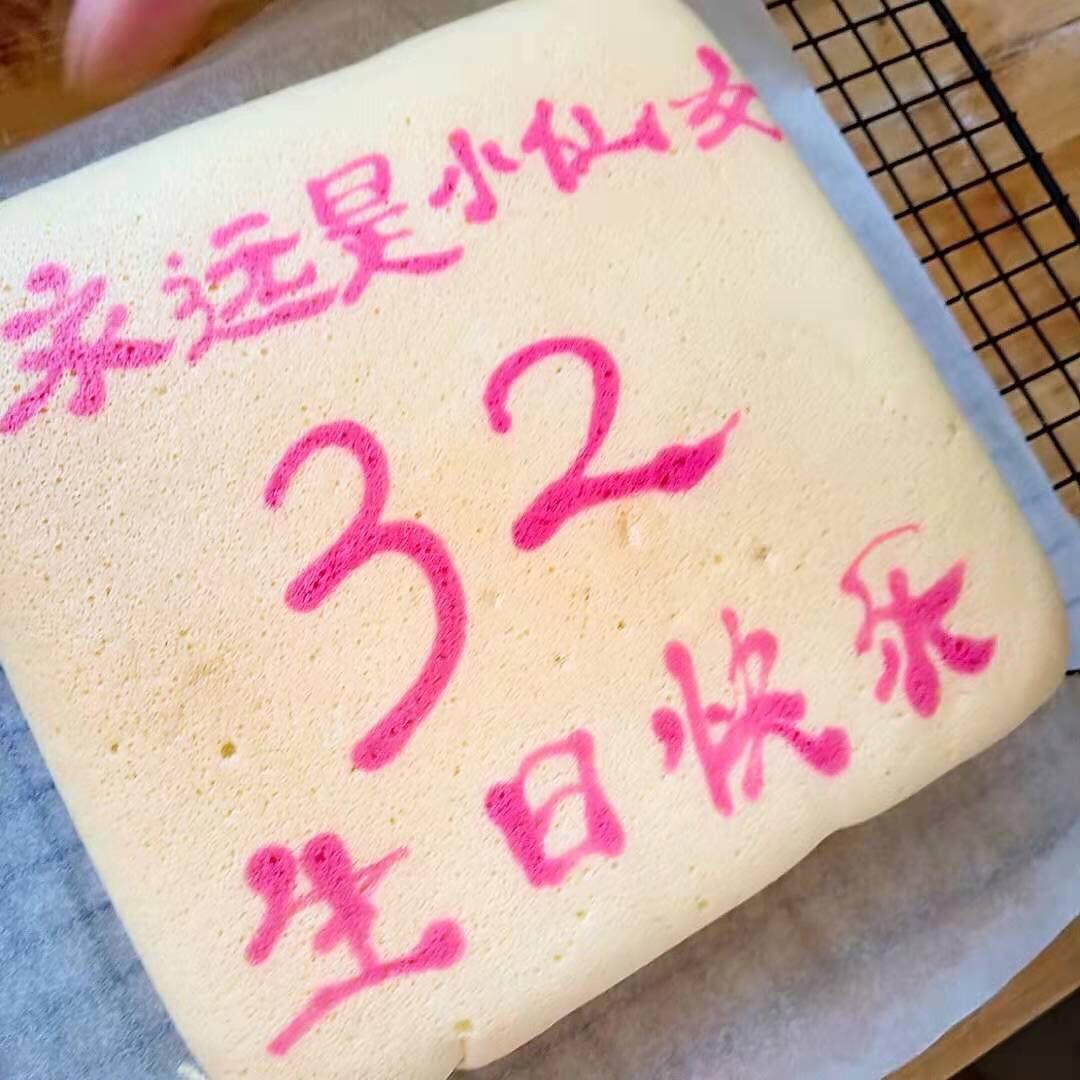 永远是小仙女
32
生日快乐